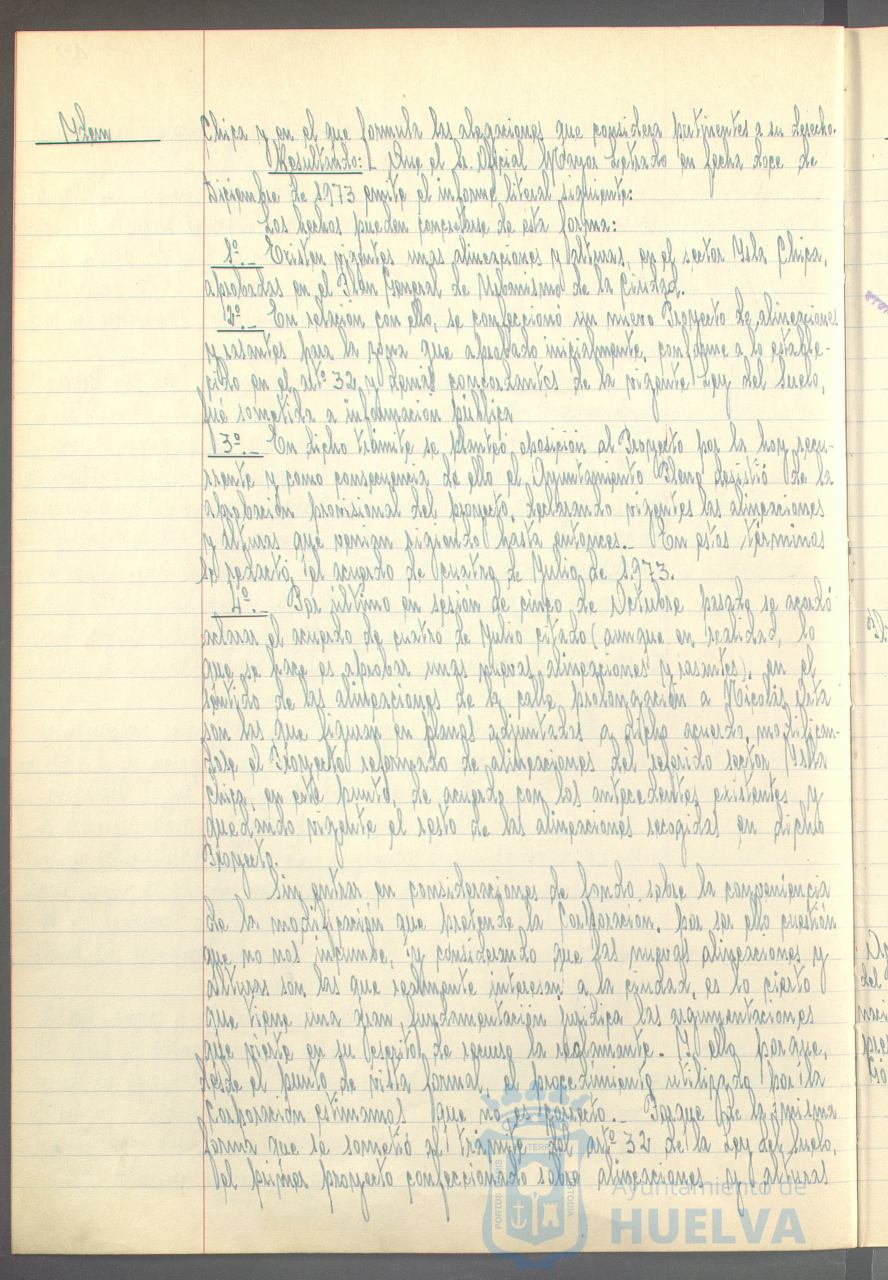 Idem
Chica y en el que formula las alegaciones que considera pertinentes a su derecho.
Resultando: Que el Sr. Oficial Mayor Letrado en fecha doce de
Diciembre de 1.973 emite el informe literal siguiente:
Los hechos pueden concretarse de esta forma:
1º.- Existen vigentes unas alineaciones y alturas, en el sector Isla Chica,
aprobadas en el Plan General de Urbanismo de la Ciudad.
2º.- En relación con ello, se confeccionó un nuevo Proyecto de alineaciones
y rasantes para la zona que aprobado inicialmente, conforme a lo estable-
cido en el artº 32 y demás concordantes de la vigente Ley del Suelo,
fué sometida a información pública
3º.- En dicho trámite se planteó oposición al Proyecto por la hoy recu-
rrente y como consecuencia de ello el Ayuntamiento Pleno desistió de la
aprobación provisional del proyecto, declarando vigentes las alineaciones
y alturas que venian rigiendo hasta entonces.- En estos términos
se redactó el acuerdo de cuatro de Julio de 1.973.
4º.- Por último en sesión de cinco de Octubre pasado se acordó
aclarar el acuerdo de cuatro de Julio citado (aunque en realidad, lo
que se hace es aprobar unas nuevas alineaciones y rasantes), en el
sentido de las alineaciones de la calle prolongación a Nicolás Orta
son las que figuran en planos adjuntados a dicho acuerdo, modifican-
dose el Proyecto reformado de alineaciones del referido sector Isla
Chica, en este punto, de acuerdo con los antecedentes existentes y
quedando vigente el resto de las alineaciones recogidas en dicho
Proyecto.
Sin entrar en consideraciones de fondo sobre la conveniencia
de la modificación que pretende la Corporacion, por ser ello cuestión
que no nos incumbe, y considerando que las nuevas alineaciones y
alturas son las que realmente interesan a la ciudad, es lo cierto
que tiene una gran fundamentación jurídica las argumentaciones
que vierte en su escrito de recurso la reclamante. Y ello porque,
desde el punto de vista formal, el procedimiento utilizado por la
Corporación estimamos que no es correcto.- Porque de la misma
forma que se sometió al trámite del artº 32 de la Ley del Suelo,
el primer proyecto confeccionado sobre alineaciones y alturas
Ayuntamiento de
HUELVA